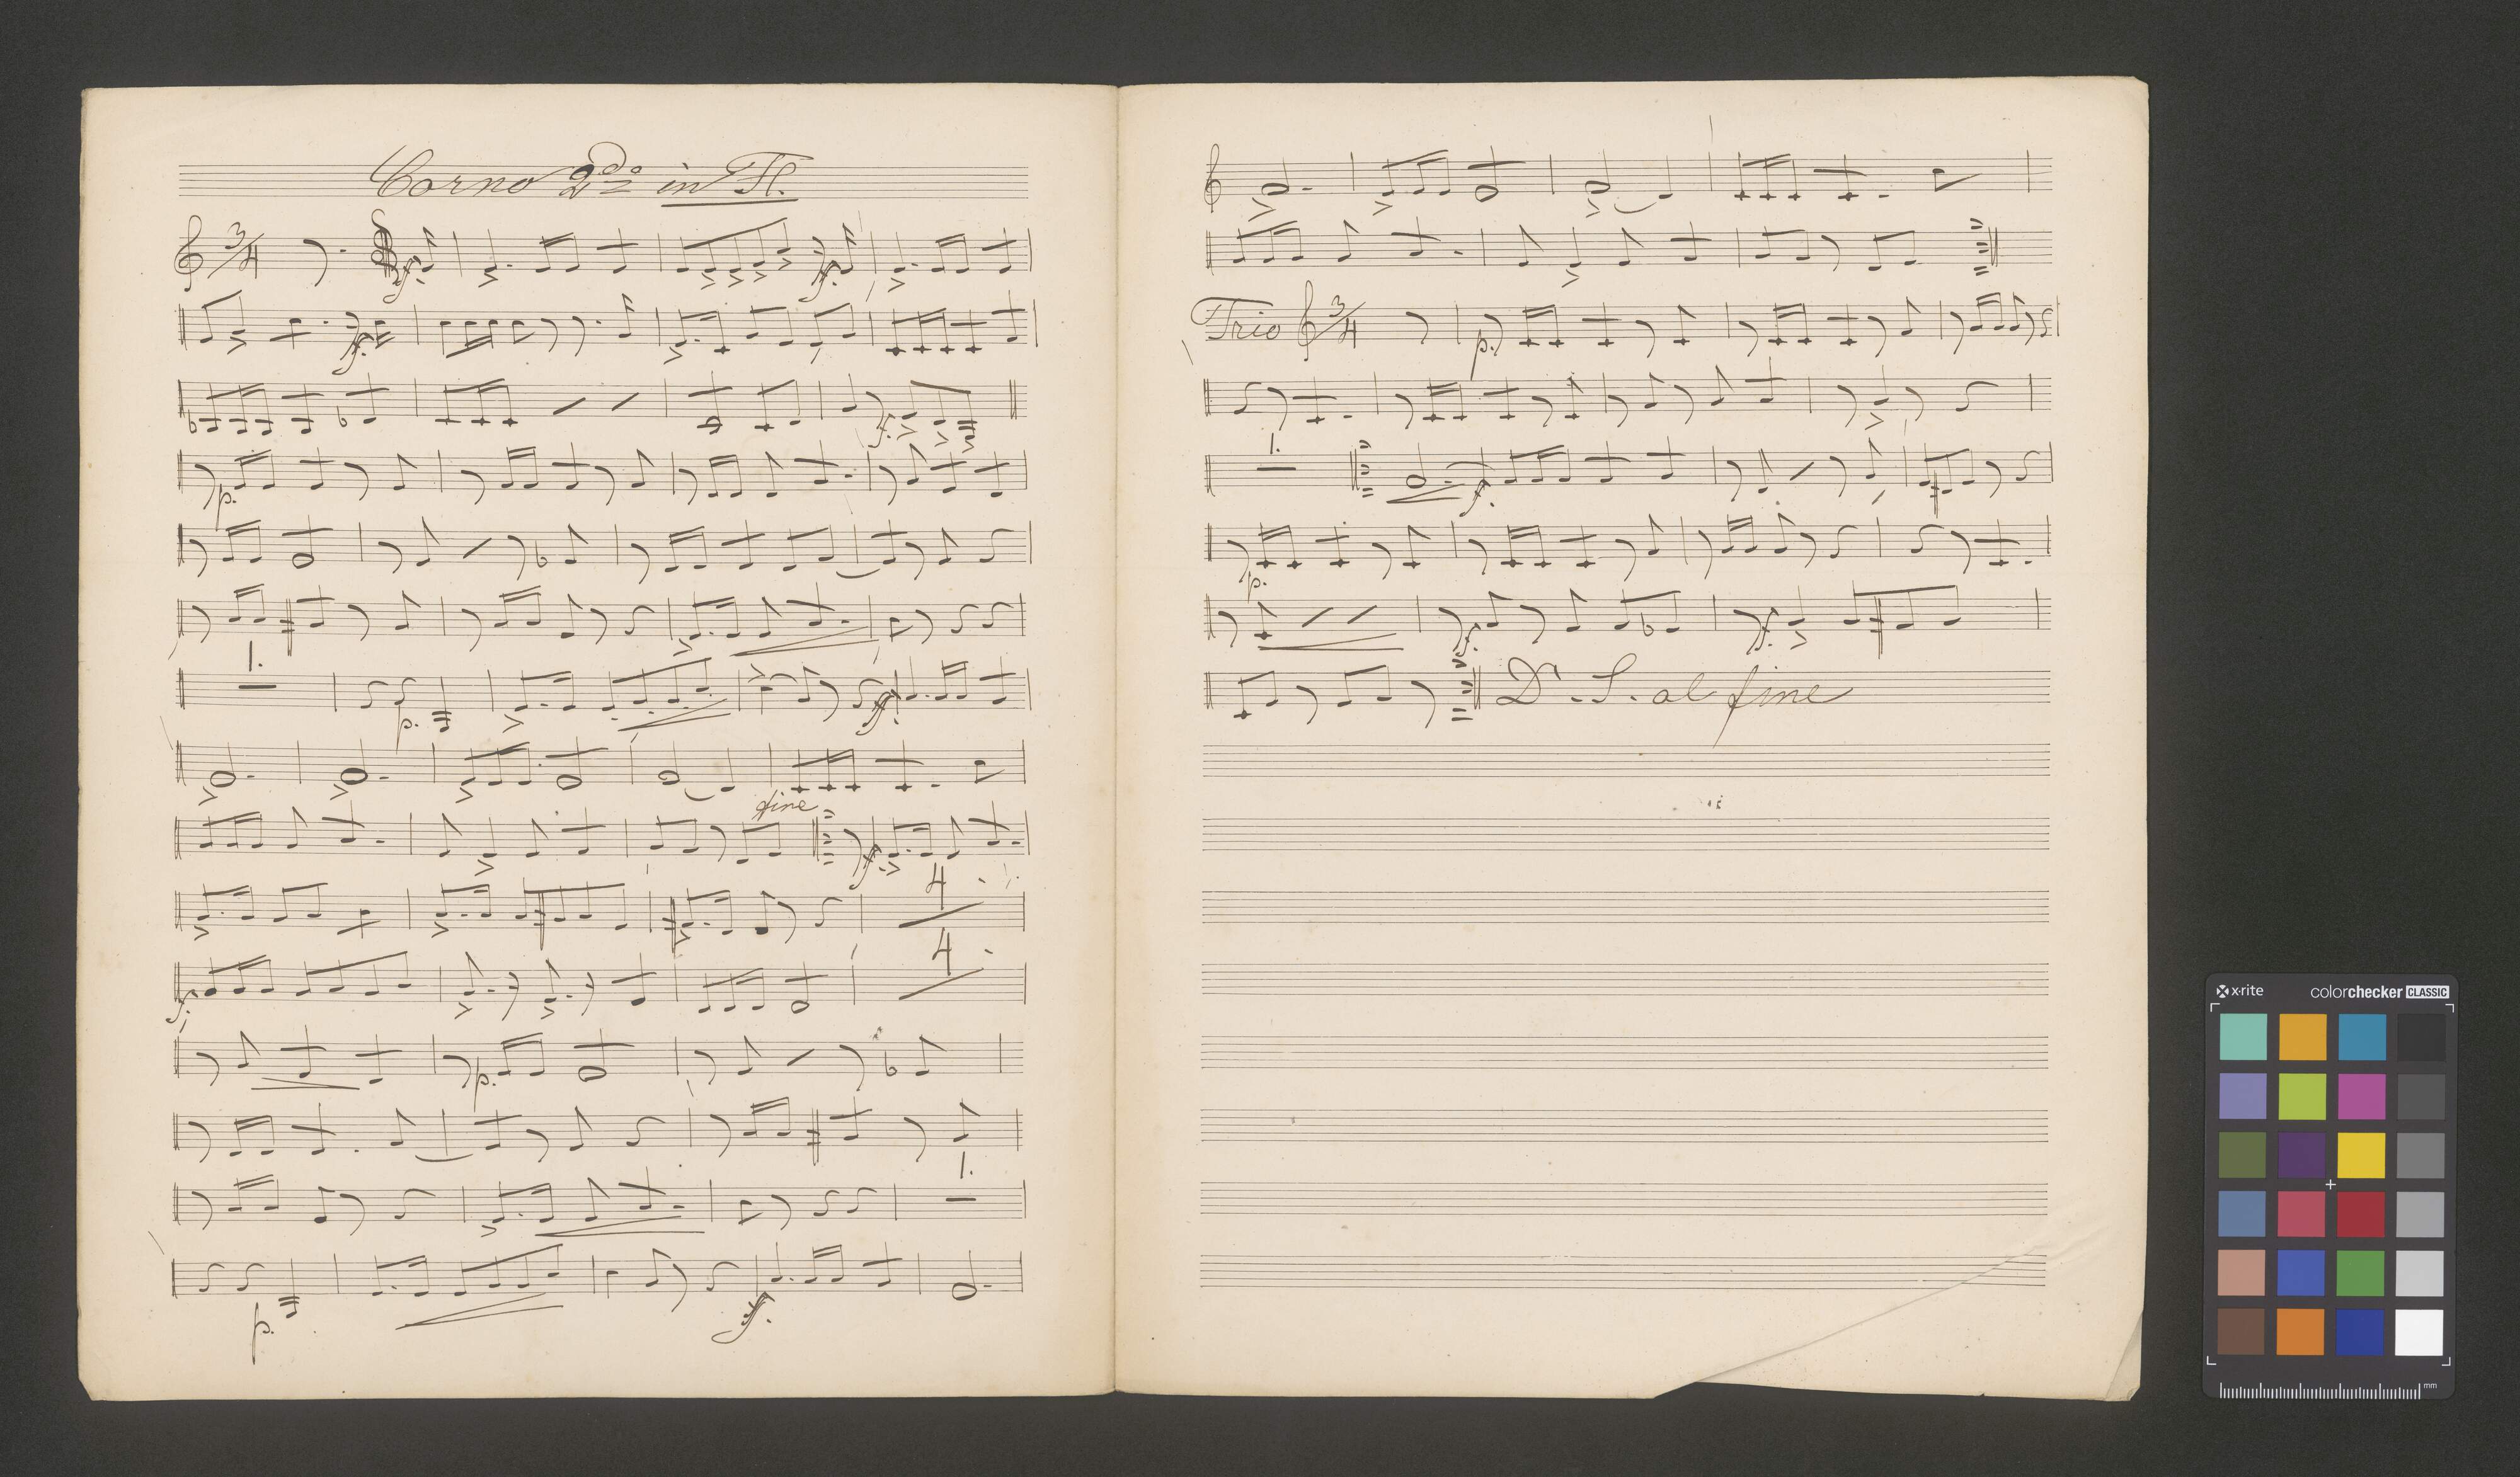 Corno 2do in F.
3/4
f.
f.
f.
f.
p.
1.
p.
ff.
fine
f.
4
4
f.
p.
1.
p.
ff.
Trio 3/4
p.
1.
f.
p.
f.
f.
D. S. al fine
x-rite
colorchecker CLASSIC
mm